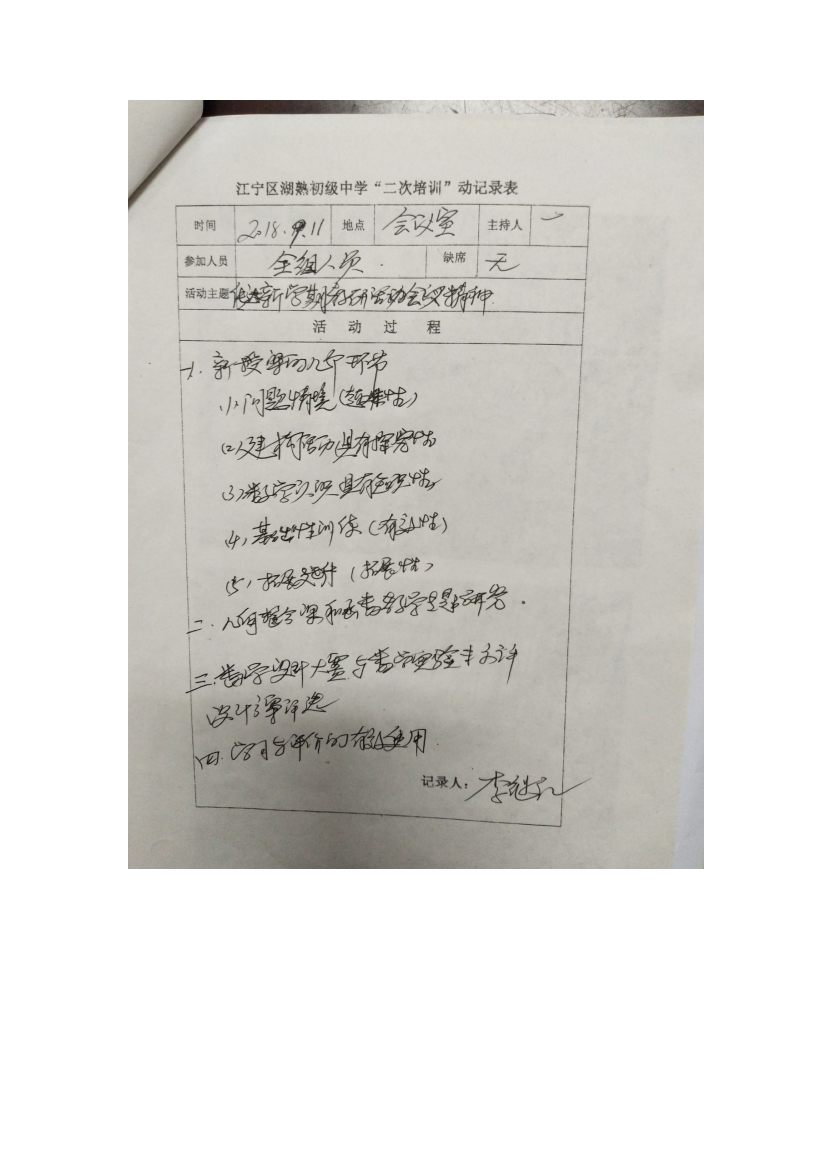 江宁区湖熟初级中学“二次培训”动记录表
时间 2018.9.11 地点 会议室 主持人
参加人员 全组人员. 缺席 无
活动主题 传达新学期教研活动会议精神.
活动过程
一. 新授课的几个环节
(1) 问题情境(趣味性)
(2) 建构活动具有探究性
(3) 数学认识具有
(4) 基础性训练(有效性)
(5) 拓展提升(拓展性)
二. 几何概念课和教学专题研究.
三. 教学设计大赛与数学实验
设计方案评选
四. 学习与评价的有效使用
记录人: